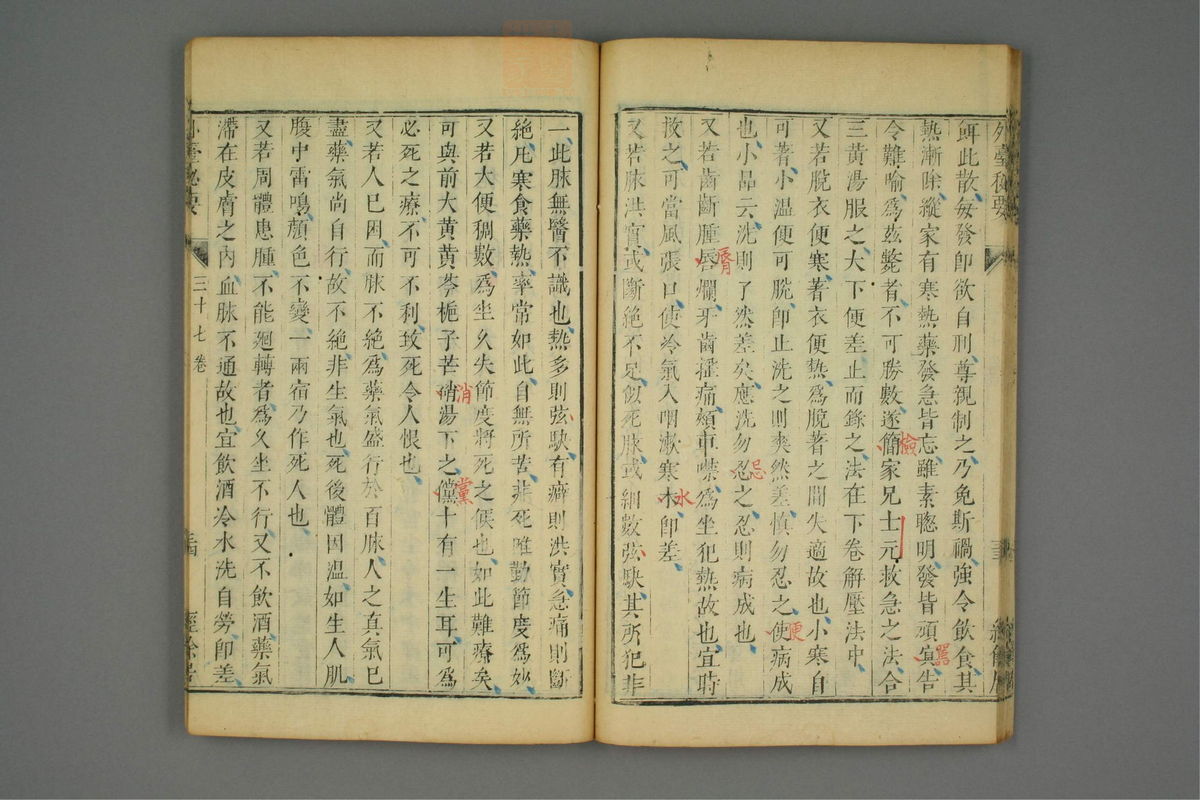 外臺秘要
餌此散每發即欲自刑尊視制之乃免斯禍強令飲食其
熱漸除縱家有寒熱藥發急皆忘雖素聰明發皆頑寘告
嚚
令難喻爲茲斃者不可勝數遂簡家兄士元救急之法合
檢
三黃湯服之大下便差止而錄之法在下卷解壓法中
又若脫衣便寒著衣便熱爲脫著之間失適故也小寒自
可著小温便可脫即止洗之則爽然差慎勿忍之使病成
便
也小品云洗則了然差矣應洗勿忍之忍則病成也
忌
又若齒齗腫唇爛牙齒搖痛頰車噤爲坐犯熱故也宜時
脣
救之可當風張口使冷氣入咽漱寒木即差
水
又若脉洪實或斷絕不足似死脉或細數弦駃其所犯非
一此脉無醫不識也熱多則弦駃有癖則洪實急痛則斷
絕凡寒食藥熱率常如此自無所苦非死唯勤節度爲妙
又若大便稠數爲坐久失節度將死之候也如此難療矣
可與前大黃黃芩梔子芒硝湯下之儻十有一生耳可爲
消
黨
必死之療不可不利致死令人恨也
又若人已困而脉不絕爲藥氣盛行於百脉人之真氣已
盡藥氣尚自行故不絕非生氣也死後體因温如生人肌
腹中雷鳴顏色不變一兩宿乃作死人也
又若周體患腫不能廻轉者爲久坐不行又不飲酒藥氣
滯在皮膚之內血脉不通故也宜飲酒冷水洗自勞即差
外臺秘要
三十七卷